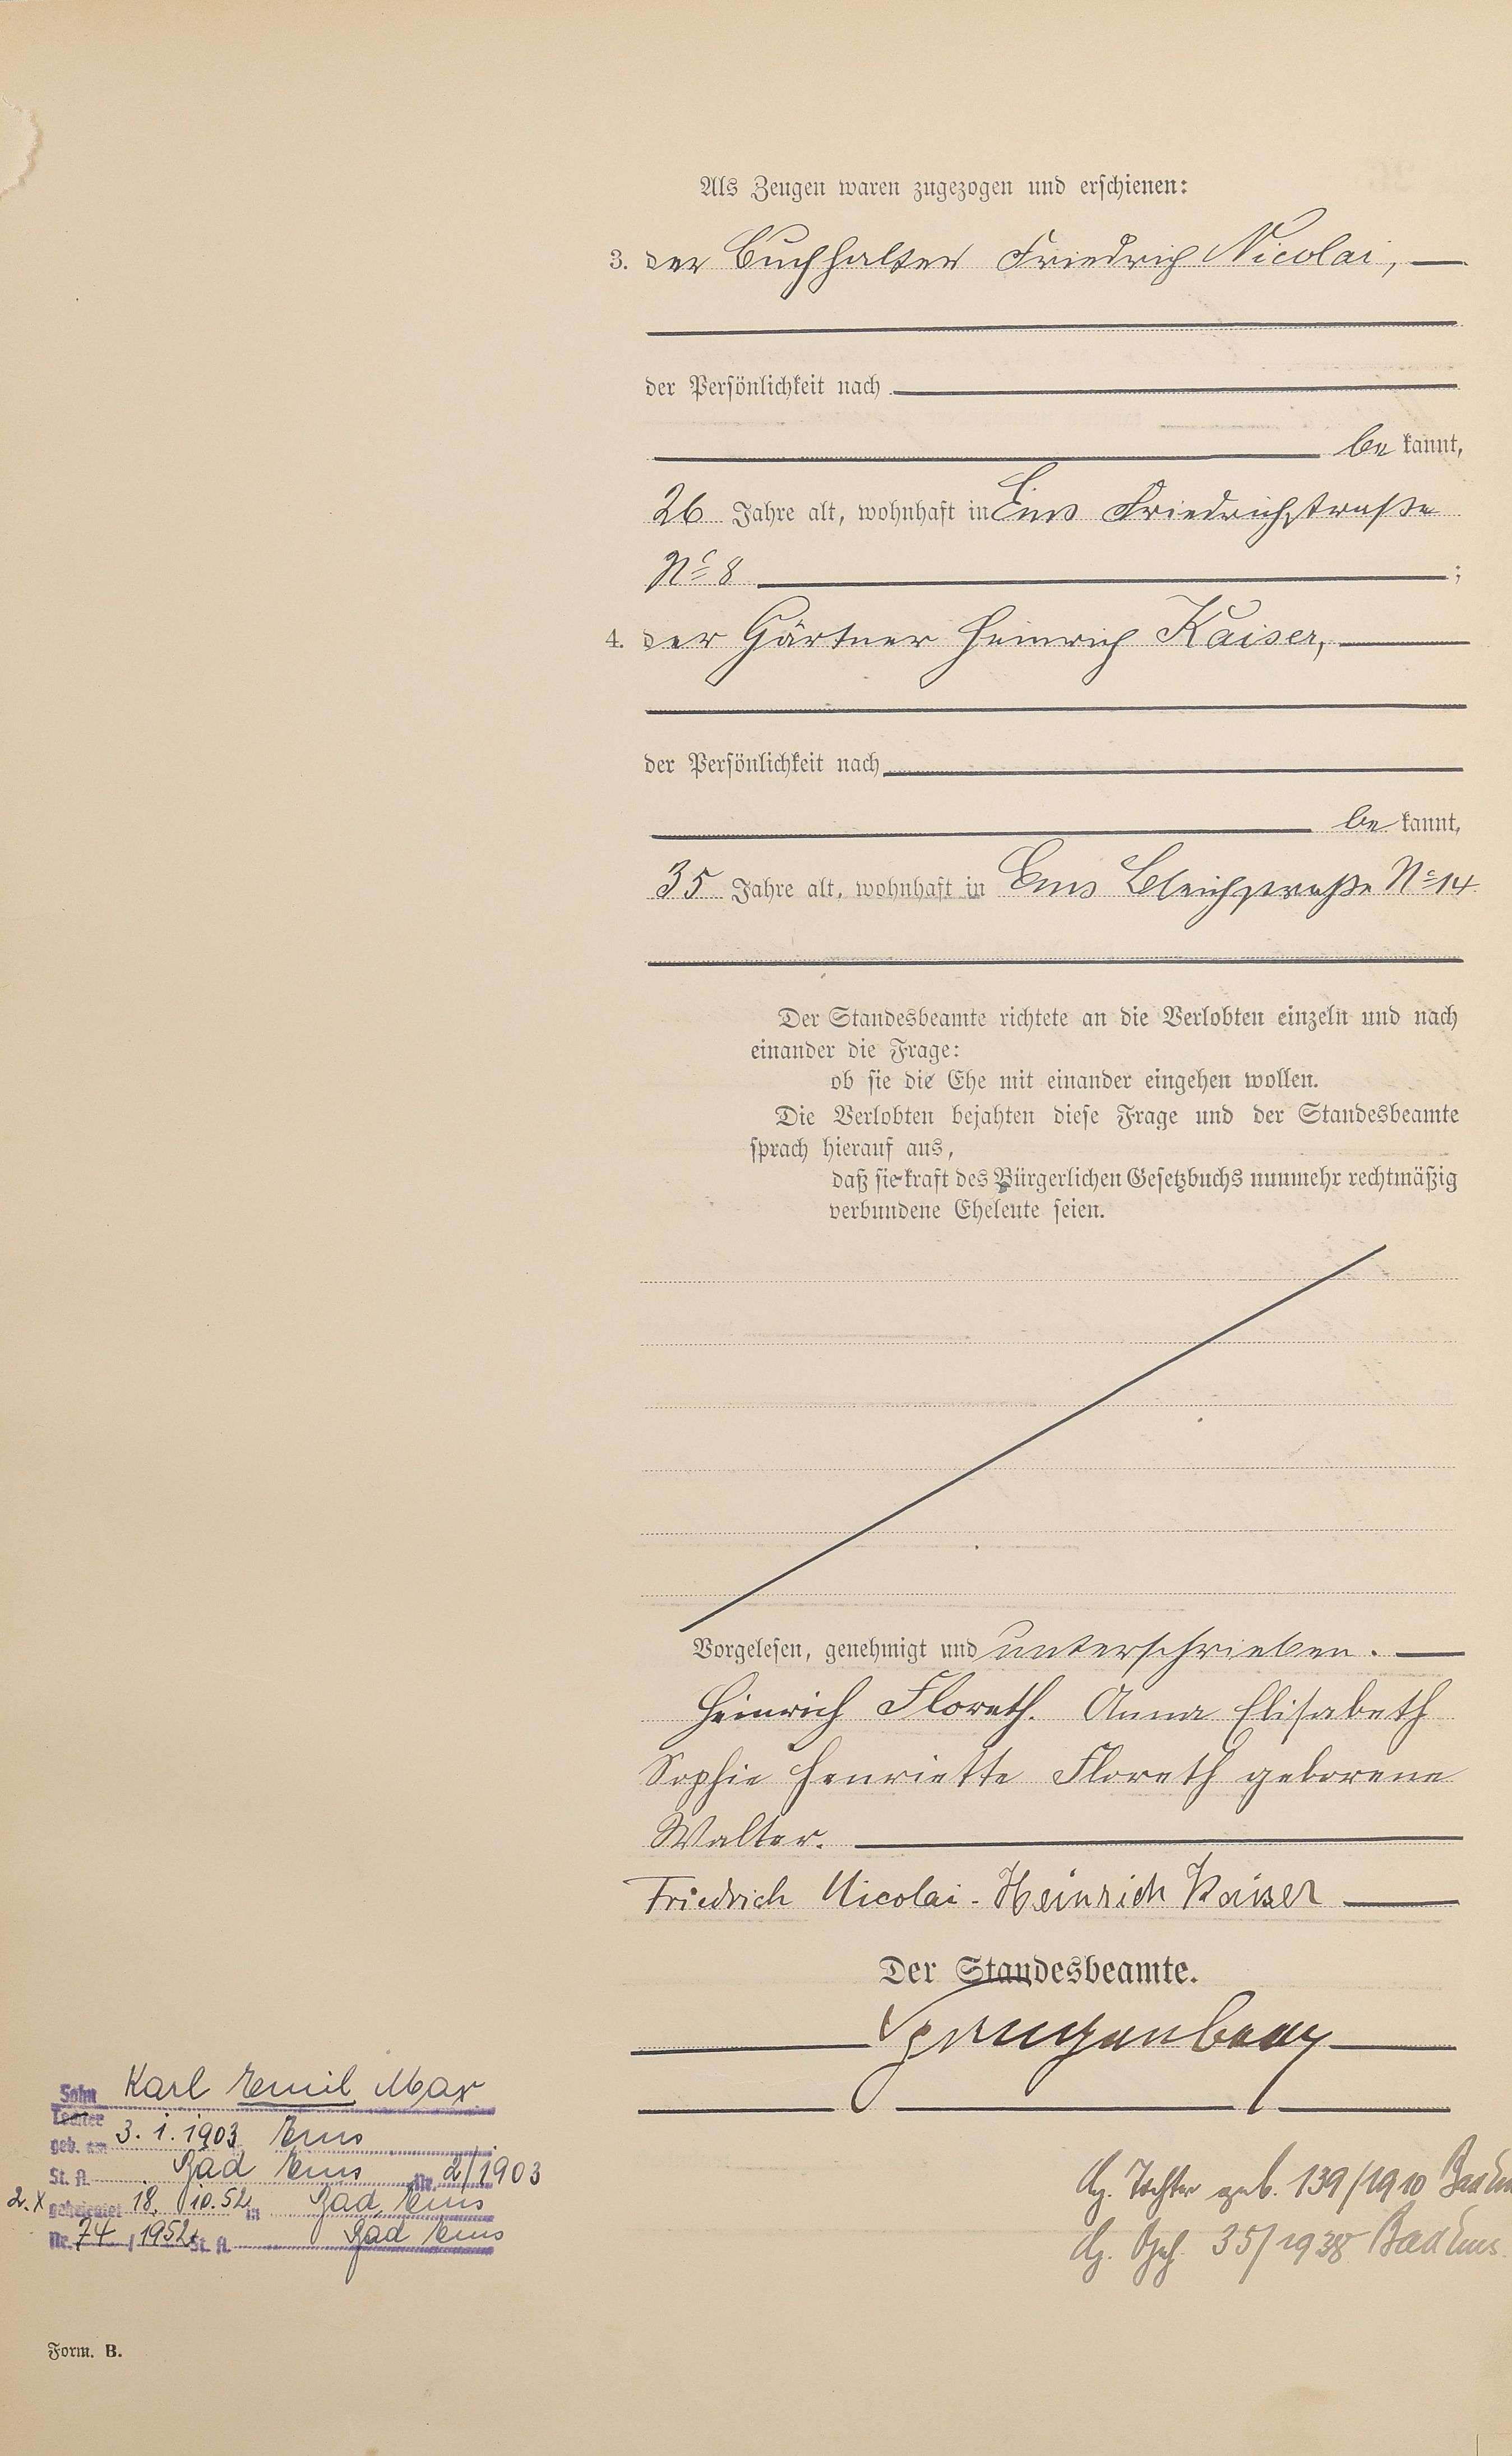 Als Zeugen waren zugezogen und erschienen:
3. der Buchhalter Friedrich Nicolai,
der Persönlichkeit nach
be kannt,
26 Jahre alt, wohnhaft in Ems Friedrichstraße
No 8 ;
4. der Gärtner Heinrich Kaiser,
der Persönlichkeit nach
be kannt,
35 Jahre alt, wohnhaft in Ems Bleichstraße No 14
Der Standesbeamte richtete an die Verlobten einzeln und nach
einander die Frage:
ob sie die Ehe mit einander eingehen wollen.
Die Verlobten bejahten diese Frage und der Standesbeamte
sprach hierauf aus,
daß sie kraft des Bürgerlichen Gesetzbuchs nunmehr rechtmäßig
verbundene Eheleute seien.
Vorgelesen, genehmigt und unterschrieben.
Heinrich Floreth. Anna Elisabeth
Sophie Henriette Floreth geborene
Walter.
Friedrich Nicolai - Heinrich Kaiser
Der Standesbeamte.
Sohn Karl Emil Max
Tochter
geb. am 3. 1. 1903 Ems
St. A. Bad Ems Nr. 2/1903
2. X geheiratet 18. 10. 52 in Bad Ems
Nr. 74 / 1952 St. A. Bad Ems
Tochter geb. 139/1910 Bad Ems
35/1938 Bad Ems.
Form. B.